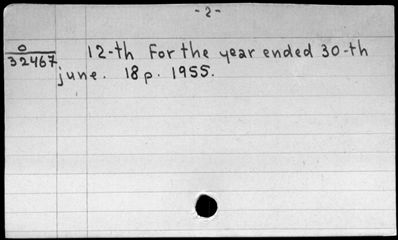 - 2 -
0 12-th For the year ended 30-th
32467 june. 18 p. 1955.